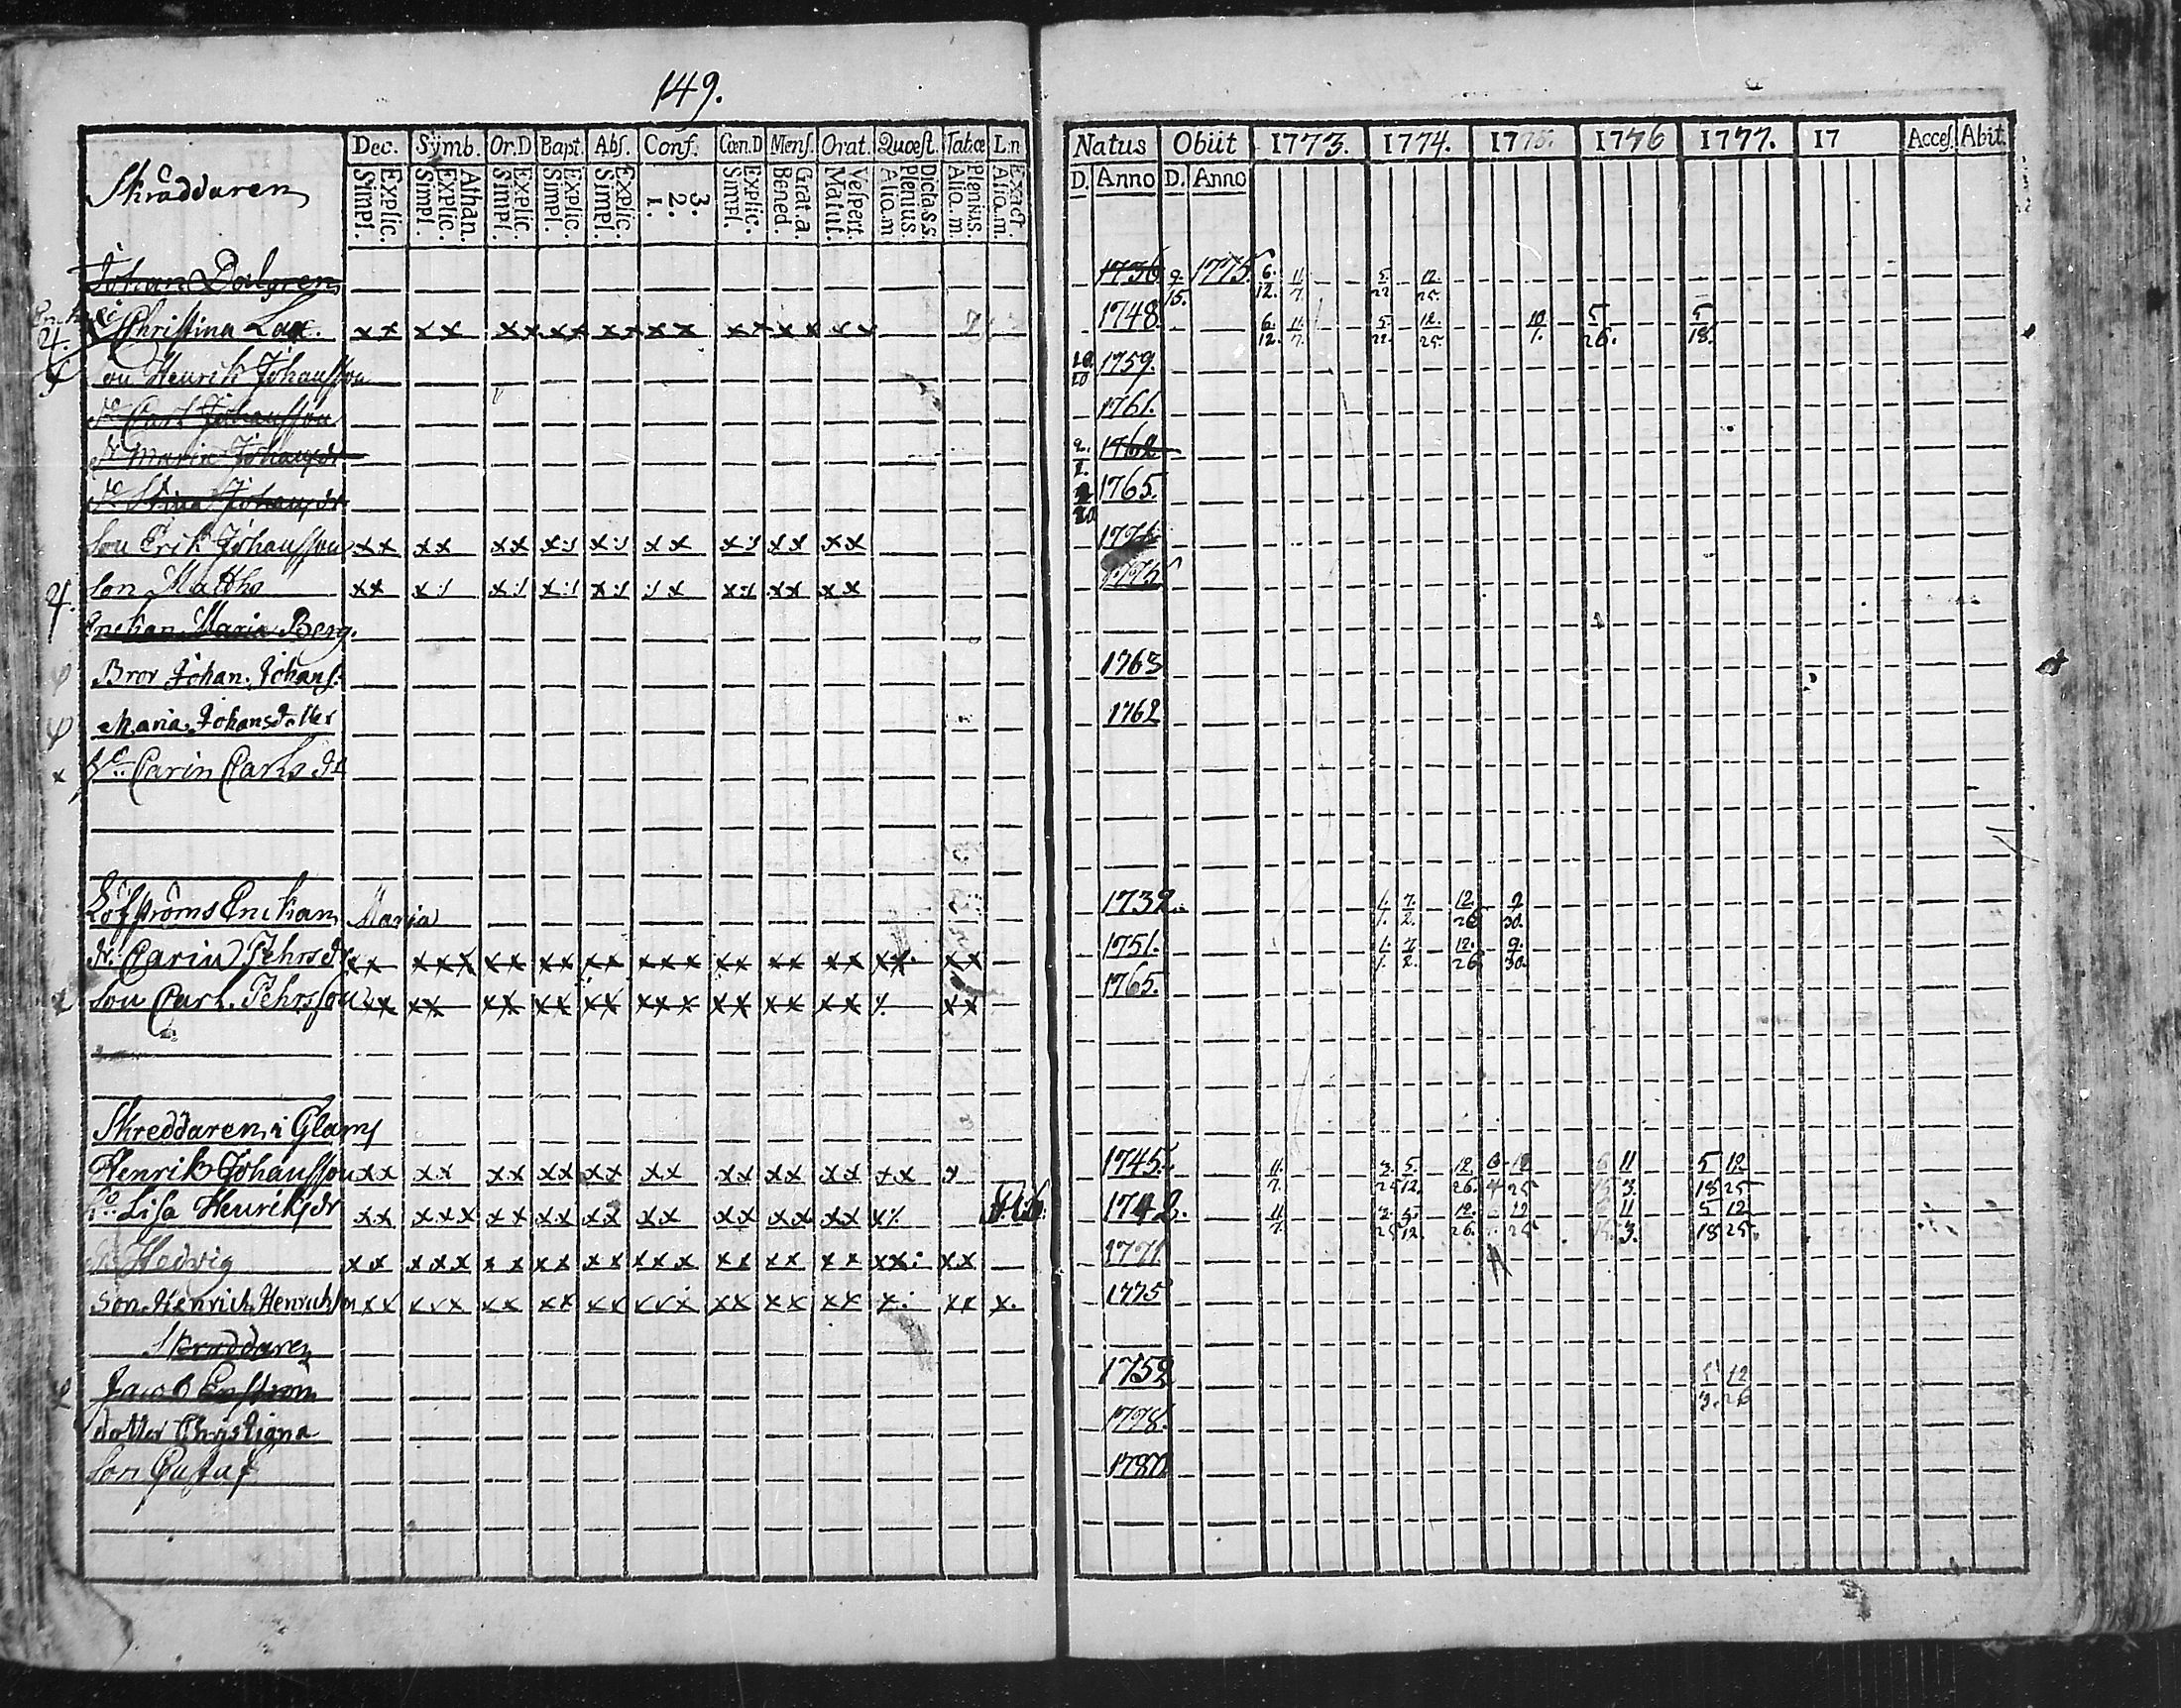 149.
Dec. Sÿmb. Or.D Bapt. Abſ. Conf. Cœn.D Menſ. Orat. Quœſt. Tabœ L.n
Explic. Simpl. Athan. Explic. Simpl. Explic. Simpl. Explic. Simpl. Explic. Simpl. 3. 2. 1. Explic. Simpl. Grat.a. Bened. Veſpert. Matut. Dicta S.S. Plenius. Aliq.m Plenius. Aliq.m. Exact. Aliq.m.
Natus Obiit 1773. 1774. 1775. 1776 1777. 17 Acceſ. Abit.
D. Anno D. Anno
Skräddaren
Johan Dalgren 1736 9/15. 1775 6./12. 11/7. 5./22. 12./25.
Christina Lax. xx xx xx xx xx xx xx xx xx 1748 6./12. 11./7. 5./22. 12./25. 10/1. 5/26. 5/18.
son Henrik Johansson 10/10 1759.
Sn Carl Johansson 1761.
dr Maria Johansdr 2./1. 1762
Stina Johansdr 1765.
Son Erik Johansson xx xx xx x:/ x:/ xx x:/ xx xx
4. Son Matths xx x:/ x:/ x:/ x:/ /x x:/ xx xx 1775
Enckan Maria Berg.
Bror Johan Johans: 1763
Maria Johansdotter 1762
x Carin Carlsdr
Löfströms Enckan Maria 1732. 1./1. 7./2. 12./26 9/30.
dr. Carin Pehrsdr xx xxx xx xx xx xxx xx xx xx xx. xx 1751. 1./1. 7./2. 12./26 9/30.
Son Carl Pehrsson xx xx xx xx xx xxx xx xx xx x xx 1765.
Skreddaren i Glams
Henrik Johansson xx xx xx xx xx xx xx xx xx xx x 1745. 11./7. 3./25 5./12. 12./26. 12/25 11/3. 5/18 12/25
Lisa Henriksdr xx xxx xx xx xx xx xx xx xx x/. 1742. 11/7. 3./25 5./12. 12./26. 12/25 11/3. 5/18 12/25.
dr Hedwig xx xxx xx xx xx xxx xx xx xx xx: xx 1771
Son Henrich Henrichson xx xxx xx xx xx xxx xx xx xx x: xx x. 1775
Skräddaren
Jacob Enström 1752 12/26
dotter Christina 1778.
Son Gustaf 1780